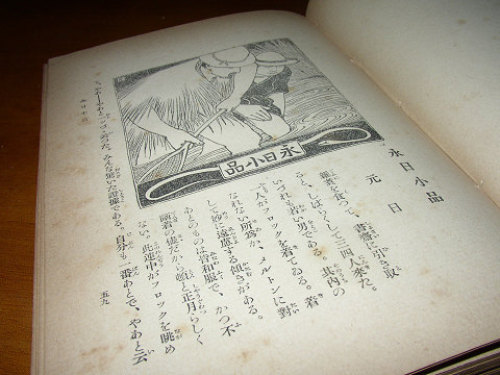 永日小品
永日小品
元日
雜煮を食つて、書齋に引き取
ると、しばらくして三四人來た。
いづれも若い男である。其内の
一人がフロックを着てゐる。着
なれない所爲か、メルトンに對
して妙に遠慮する傾きがある。
あとのものは皆和服で、かつ不
斷着の儘だから頓と正月らしく
ない。此連中がフロックを眺め
て、やあ――やあと一ツづゝ云つた。みんな驚いた證據である。自分も一番あとで、やあと云
永日小品
五九